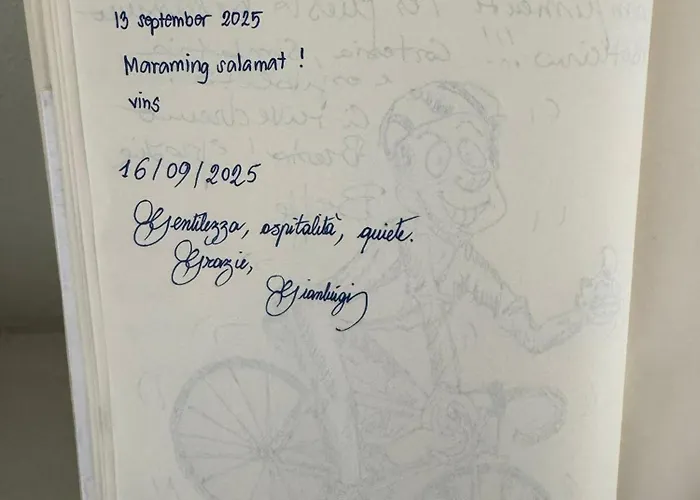 13 september 2025
Maraming salamat !
vins
16/09/2025
Gentilezza, ospitalità, quiete.
Grazie,
Gianluigi